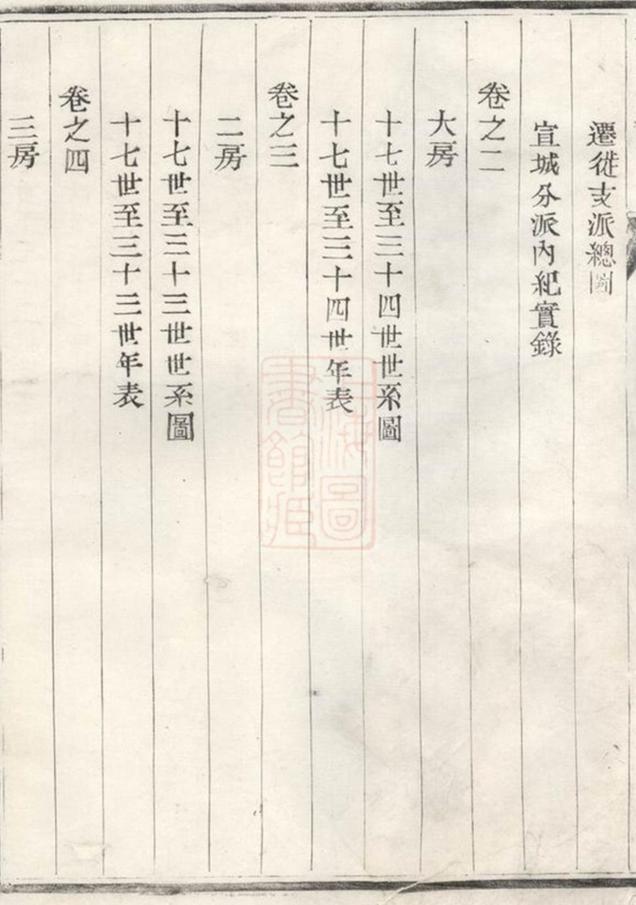 遷徙支派總圖
宣城分派內紀實錄
卷之二
大房
十七世至三十四世世系圖
十七世至三十四世年表
卷之三
二房
十七世至三十三世世系圖
十七世至三十三世年表
卷之四
三房
上海圖
書館藏